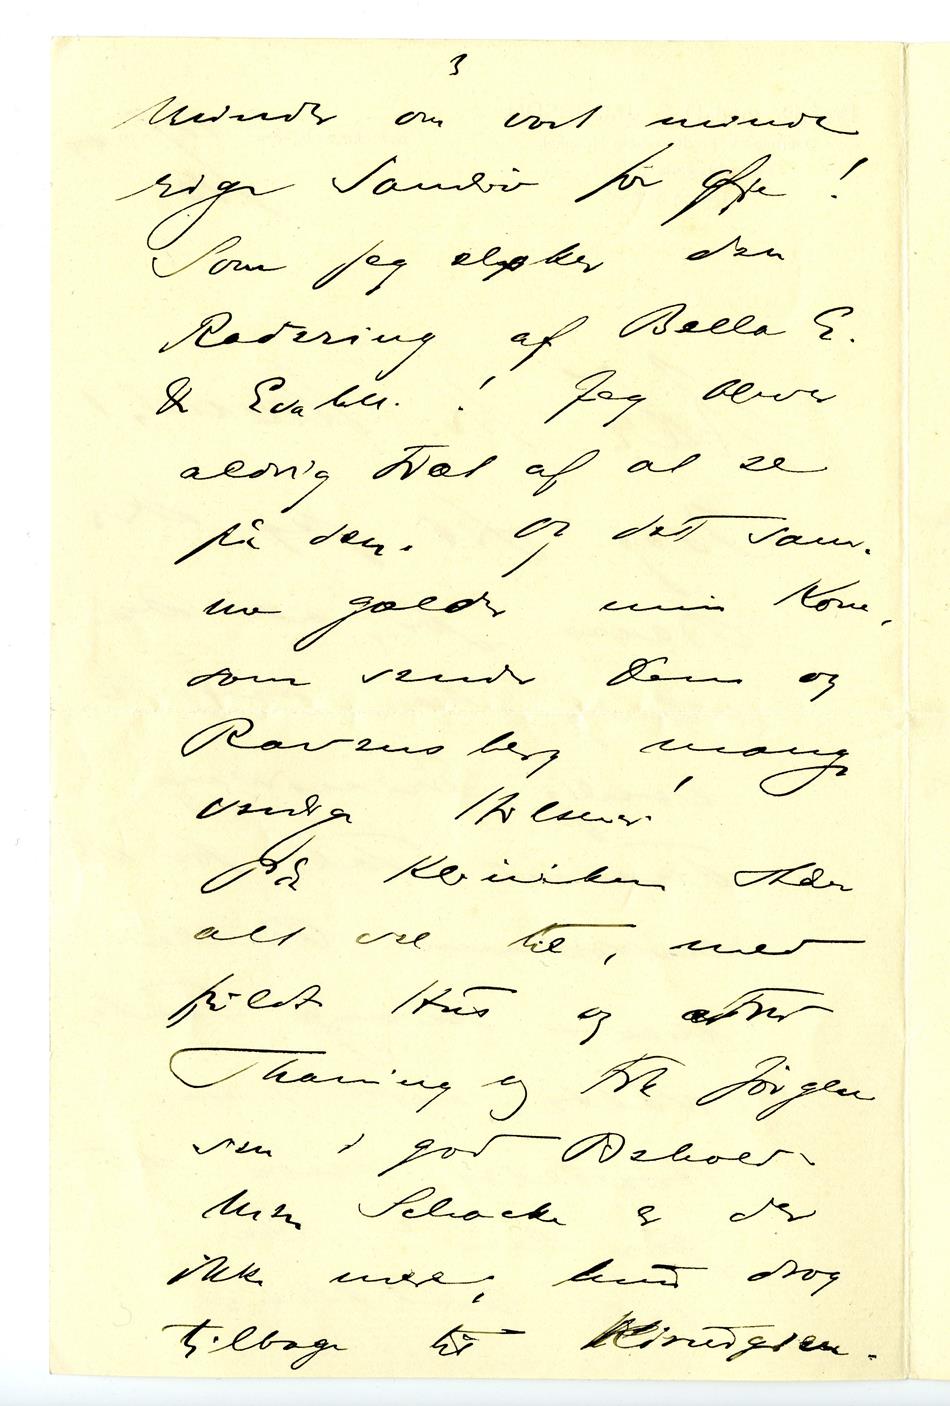 3
Minder om vort minde
rige Samliv for Øje!
Som jeg elsker den
Radering af Bella E.
& Eva M. ! Jeg bliver
aldrig træt af at se
på den. Og det sam-
me gælder min Kone,
som sender Dem og
Ravensberg mange
venlige Hilsener!
På Kliniken står
alt vel til, med
fuldt Hus og
Thaning og Frk Jörgen
sen i god Behold.
Men Schacke er der
ikke mere; hun drog
tilbage til Kirurgien.